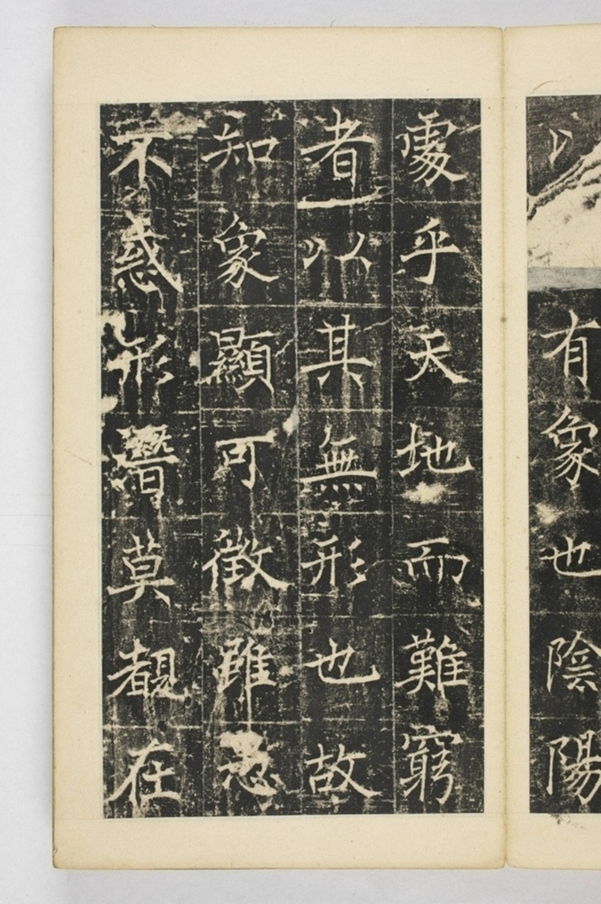 以有象也陰陽
處乎天地而難窮
者以其無形也故
知象顯可徵雖愚
不惑形潛莫覩在